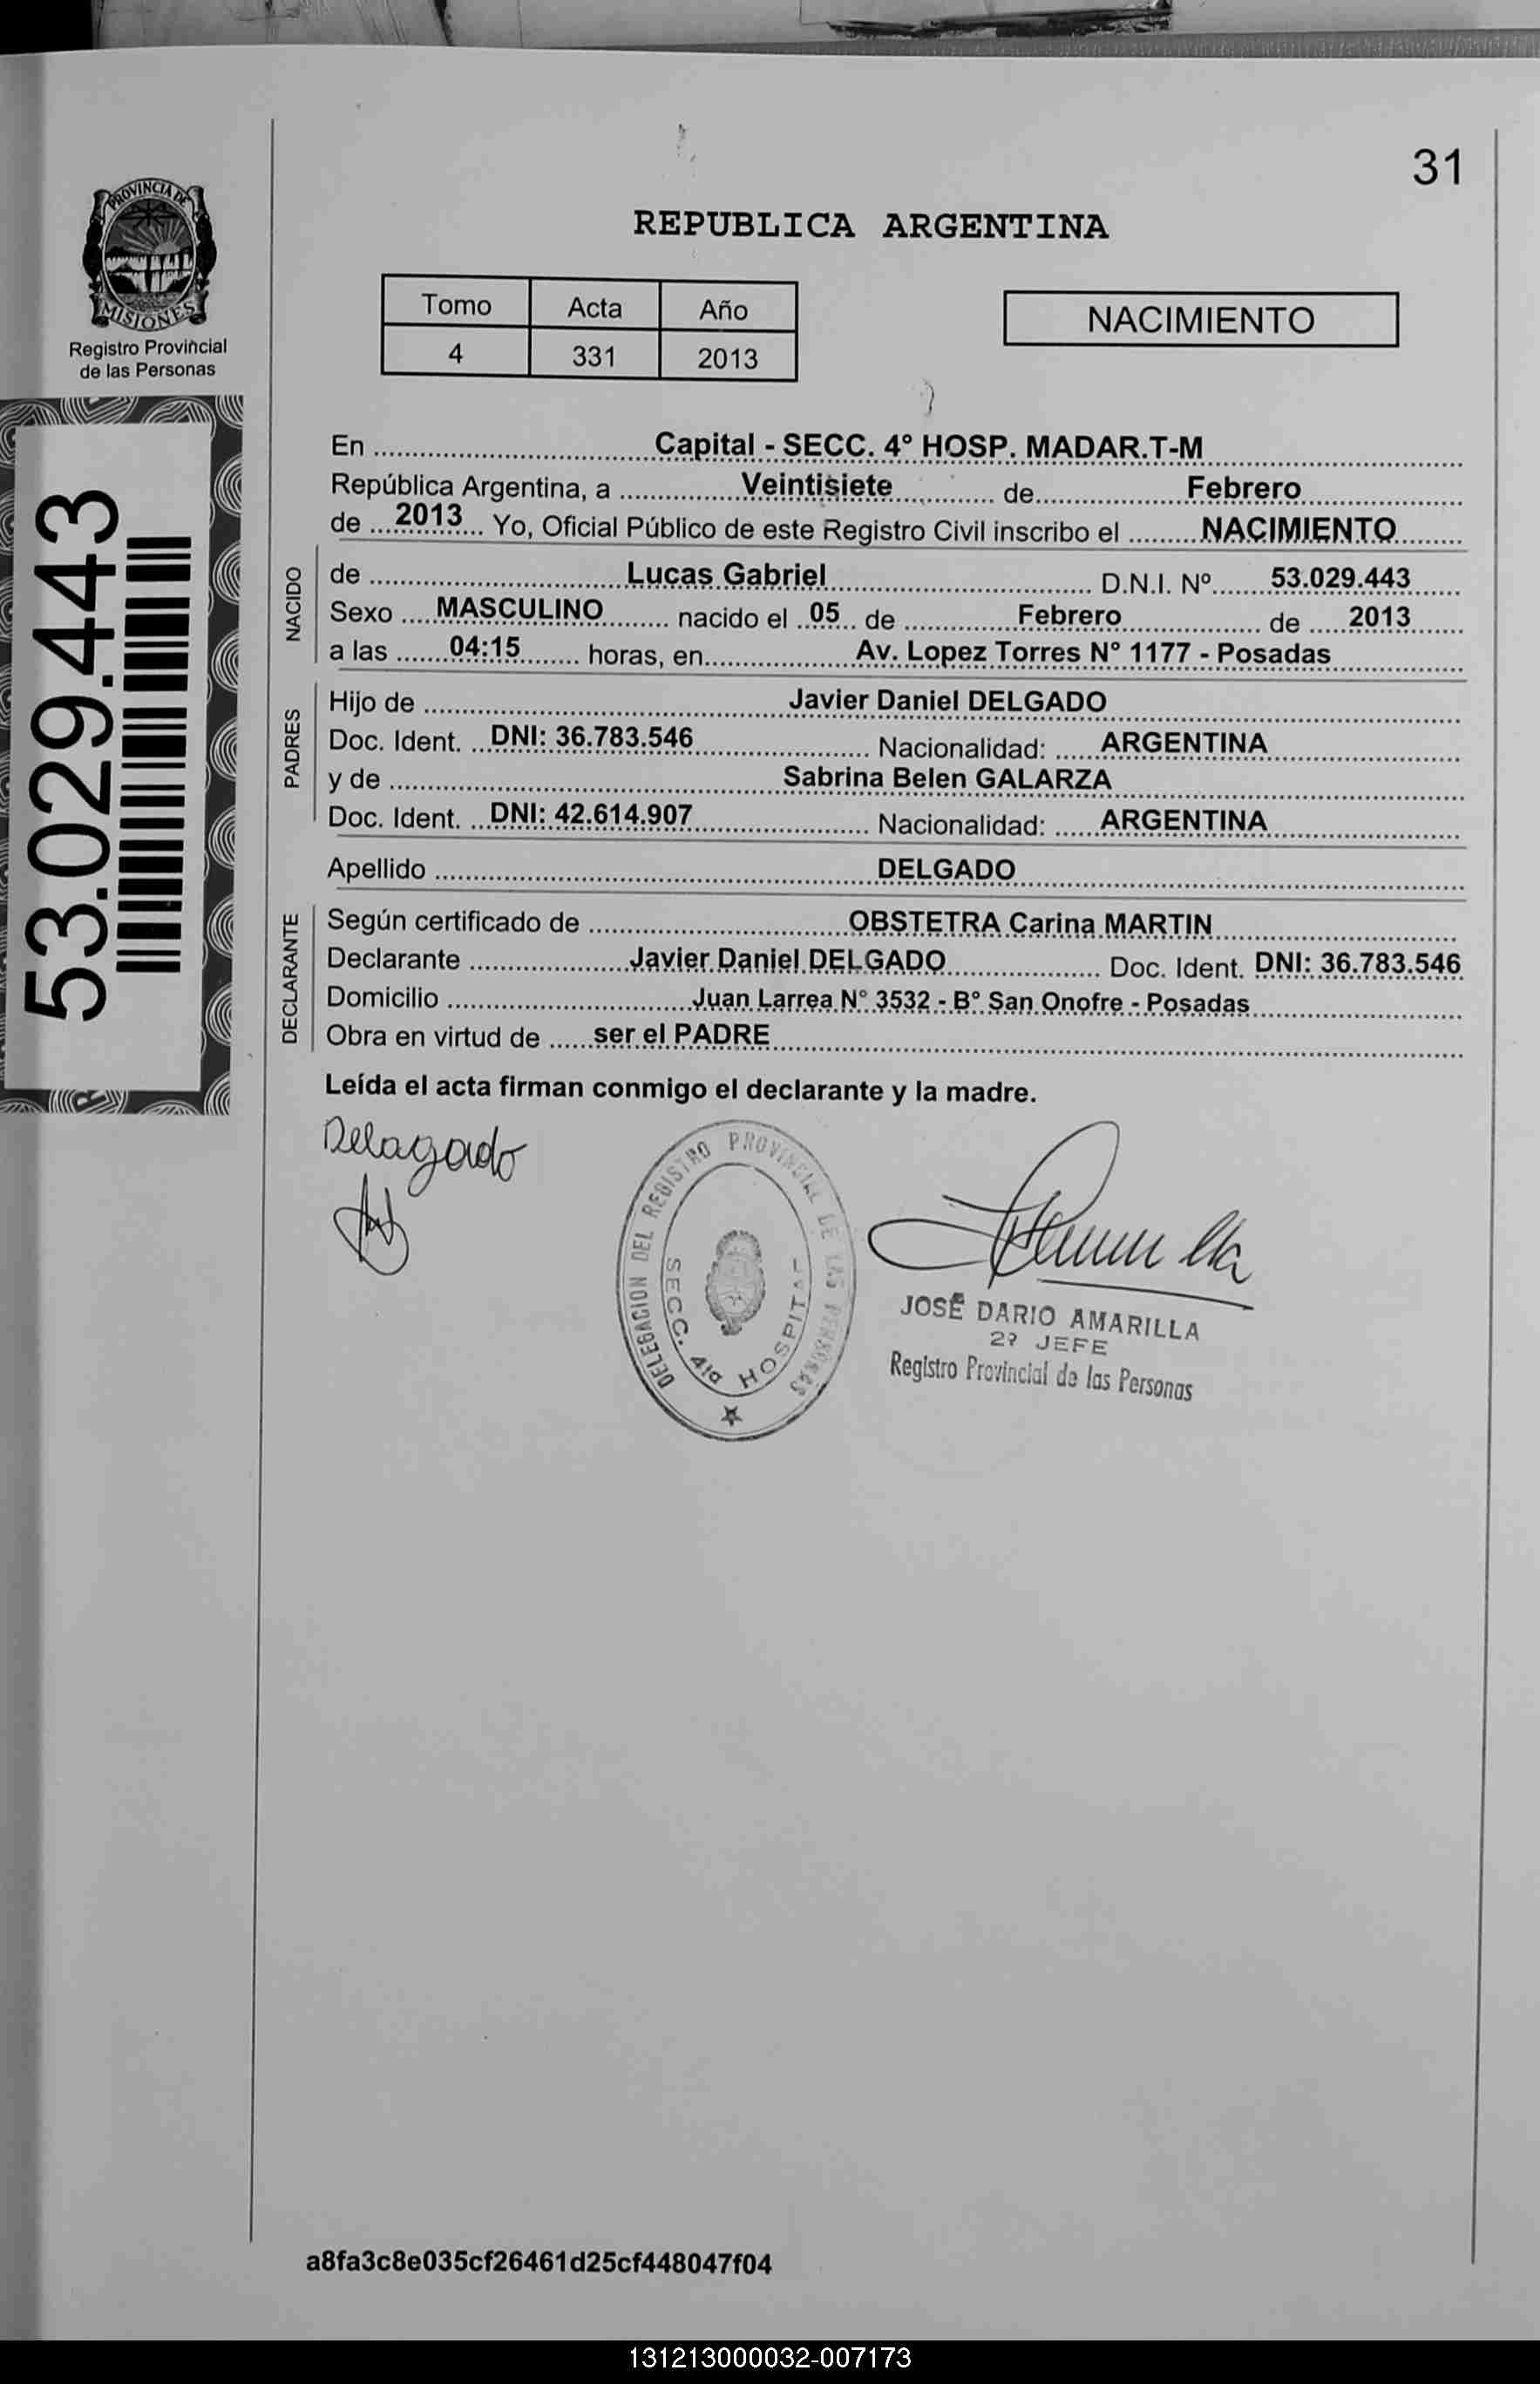 31
PROVINCIA DE
MISIONES
Registro Provincial
de las Personas
53.029.443
REPUBLICA ARGENTINA
Tomo Acta Año
4 331 2013
NACIMIENTO
En Capital - SECC. 4° HOSP. MADAR.T-M
República Argentina, a Veintisiete de Febrero
de 2013 Yo, Oficial Público de este Registro Civil inscribo el NACIMIENTO
NACIDO
de Lucas Gabriel D.N.I. Nº 53.029.443
Sexo MASCULINO nacido el 05 de Febrero de 2013
a las 04:15 horas, en Av. Lopez Torres N° 1177 - Posadas
PADRES
Hijo de Javier Daniel DELGADO
Doc. Ident. DNI: 36.783.546 Nacionalidad: ARGENTINA
y de Sabrina Belen GALARZA
Doc. Ident. DNI: 42.614.907 Nacionalidad: ARGENTINA
Apellido DELGADO
DECLARANTE
Según certificado de OBSTETRA Carina MARTIN
Declarante Javier Daniel DELGADO Doc. Ident. DNI: 36.783.546
Domicilio Juan Larrea N° 3532 - B° San Onofre - Posadas
Obra en virtud de ser el PADRE
Leída el acta firman conmigo el declarante y la madre.
Delagado
DELEGACION DEL REGISTRO PROVINCIAL DE LAS PERSONAS
SECC. 4ta HOSPITAL
JOSÉ DARIO AMARILLA
2º JEFE
Registro Provincial de las Personas
a8fa3c8e035cf26461d25cf448047f04
131213000032-007173